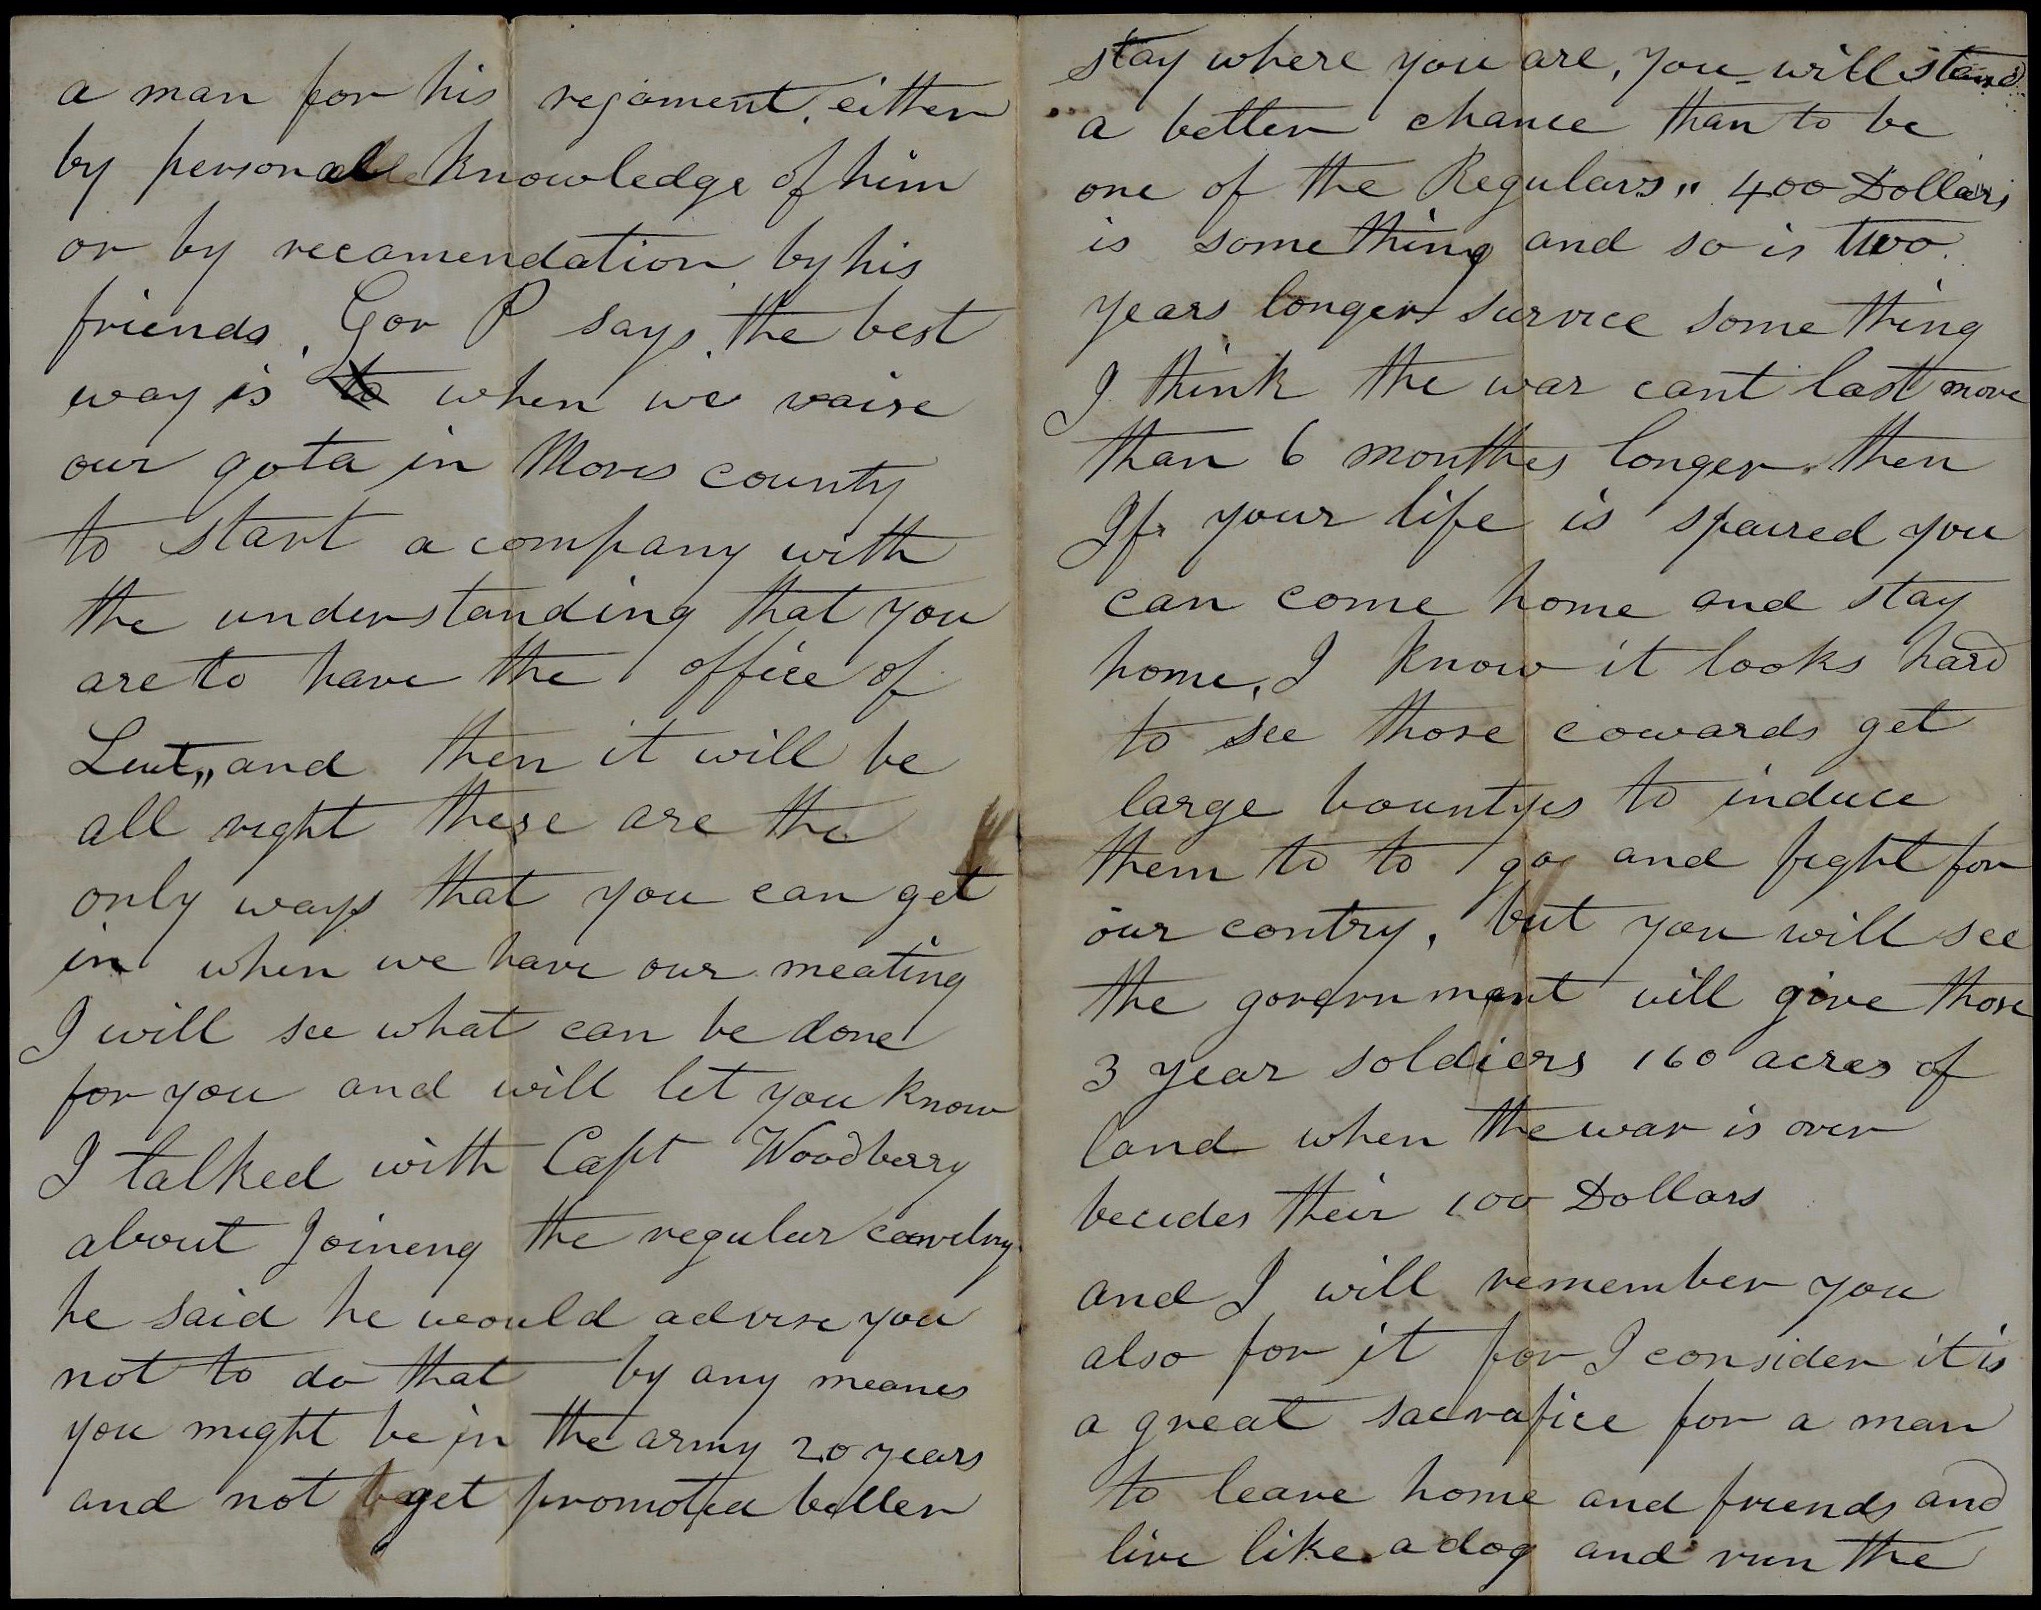 a man for his regament. either
by personal knowledge of him
or by recamendation by his
friends. Gov P says the best
way is to when we raise
our qota in Moris county
to start a company with
the understanding that you
are to have the office of
Leut,, and then it will be
all right these are the
only ways that you can get
in when we have our meating
I will see what can be done
for you and will let you know
I talked with Capt Woodberry
about Joineng the regular cavelry
he said he would advise you
not to do that by any meanes
you might be in the army 20 years
and not get promoted better
stay where you are, you will stand
a better chance than to be
one of the Regulars,, 400 Dollars
is something and so is two
years longer survice something
I think the war cant last more
than 6 monthes longer. then
If your life is spaired you
can come home and stay
home, I know it looks hard
to see those cowards get
large bountyes to induce
them to to go and fight for
our contry, but you will see
the government will give those
3 year soldiers 160 acres of
land when the war is over
becides their 100 Dollars
and I will remember you
also for it for I consider it is
a great sacrafice for a man
to leave home and friends and
live like a dog and run the